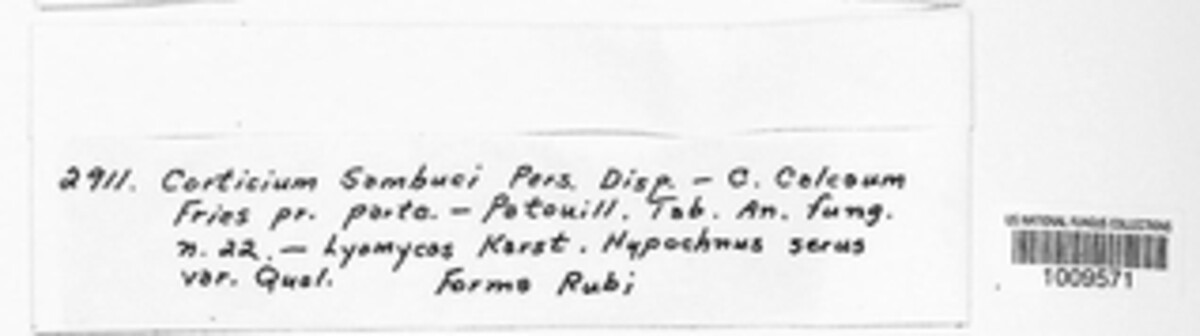 2911. Corticium Sambuci Pers. Disp. – C. Calceum
Fries pr. parte. – Patouill. Tab. An. fung.
n. 22. – Lyomyces Karst. Hypochnus serus
var. Quel. Forma Rubi
US NATIONAL FUNGUS COLLECTIONS
1009571